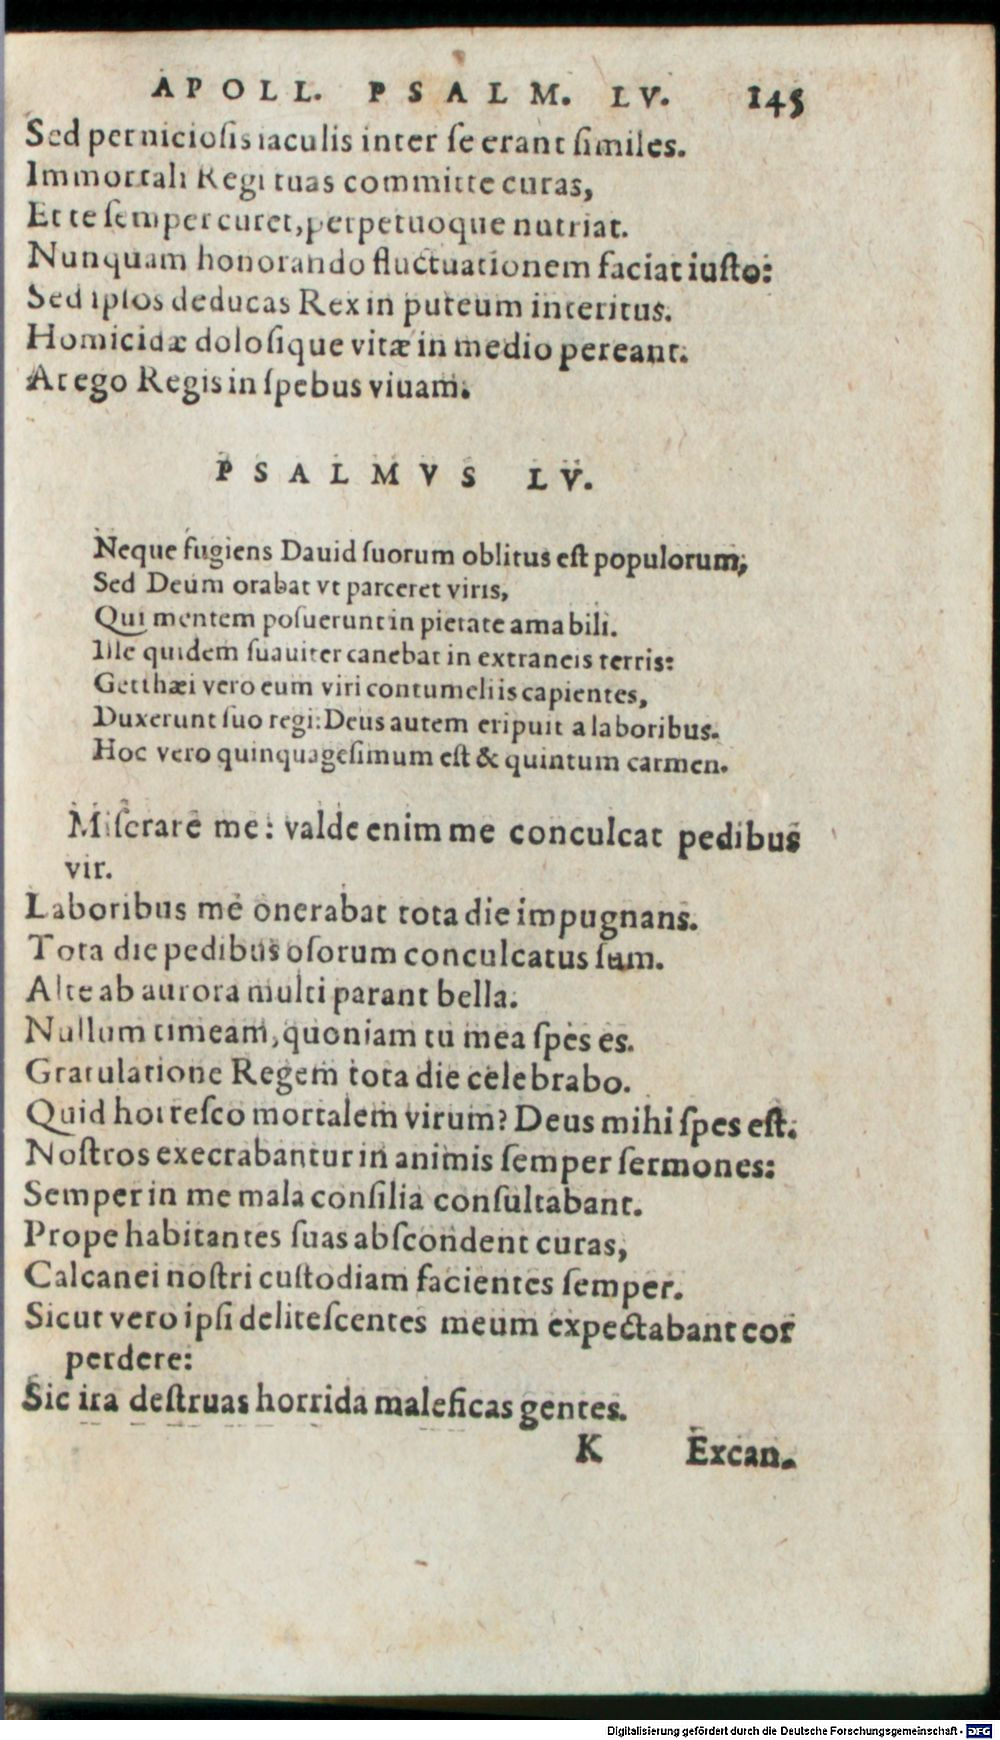 APOLL. PSALM. LV. 145
Sed perniciosis iaculis inter se erant similes.
Immortali Regi tuas committe curas,
Et te semper curet, perpetuoque nutriat.
Nunquam honorando fluctuationem faciat iusto:
Sed ipsos deducas Rex in puteum interitus.
Homicidæ dolosique vitæ in medio pereant.
At ego Regis in spebus viuam.
PSALMVS LV.
Neque fugiens Dauid suorum oblitus est populorum,
Sed Deum orabat vt parceret viris,
Qui mentem posuerunt in pietate amabili.
Ille quidem suauiter canebat in extraneis terris:
Getthæi vero eum viri contumeliis capientes,
Duxerunt suo regi: Deus autem eripuit a laboribus.
Hoc vero quinquagesimum est & quintum carmen.
Miserare me: valde enim me conculcat pedibus
vir.
Laboribus me onerabat tota die impugnans.
Tota die pedibus osorum conculcatus sum.
Alte ab aurora multi parant bella.
Nullum timeam, quoniam tu mea spes es.
Gratulatione Regem tota die celebrabo.
Quid horresco mortalem virum? Deus mihi spes est.
Nostros execrabantur in animis semper sermones:
Semper in me mala consilia consultabant.
Prope habitantes suas abscondent curas,
Calcanei nostri custodiam facientes semper.
Sicut vero ipsi delitescentes meum expectabant cor
perdere:
Sic ira destruas horrida maleficas gentes.
K Excan.
Digitalisierung gefördert durch die Deutsche Forschungsgemeinschaft - DFG